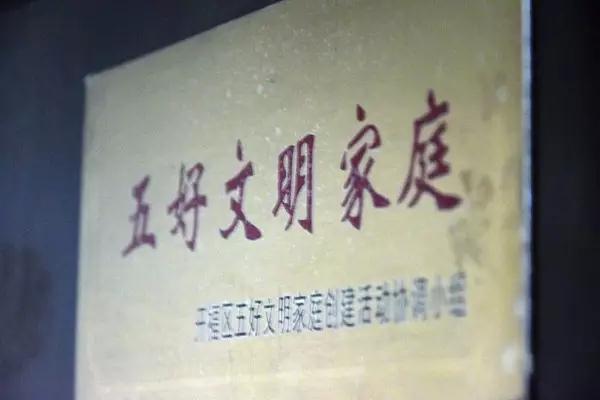 五好文明家庭
开福区五好文明家庭创建活动协调小组